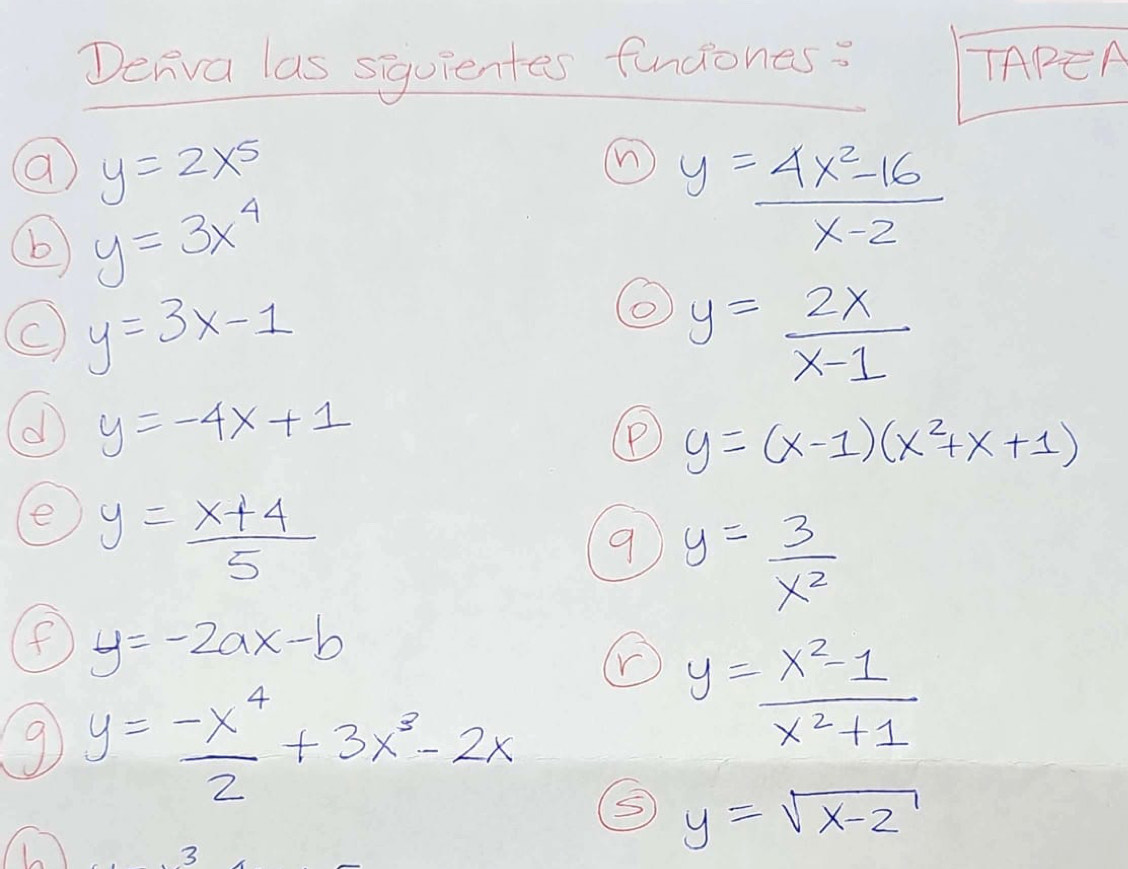 Deriva las siguientes funciones:
TAREA
a) y = 2x⁵
b) y = 3x⁴
c) y = 3x-1
d) y = -4x+1
e) y = (x+4)/5
f) y = -2ax-b
g) y = -x⁴/2 + 3x³ - 2x
h)
n) y = (4x²-16)/(x-2)
o) y = 2x/(x-1)
p) y = (x-1)(x²+x+1)
q) y = 3/x²
r) y = (x²-1)/(x²+1)
s) y = √(x-2)